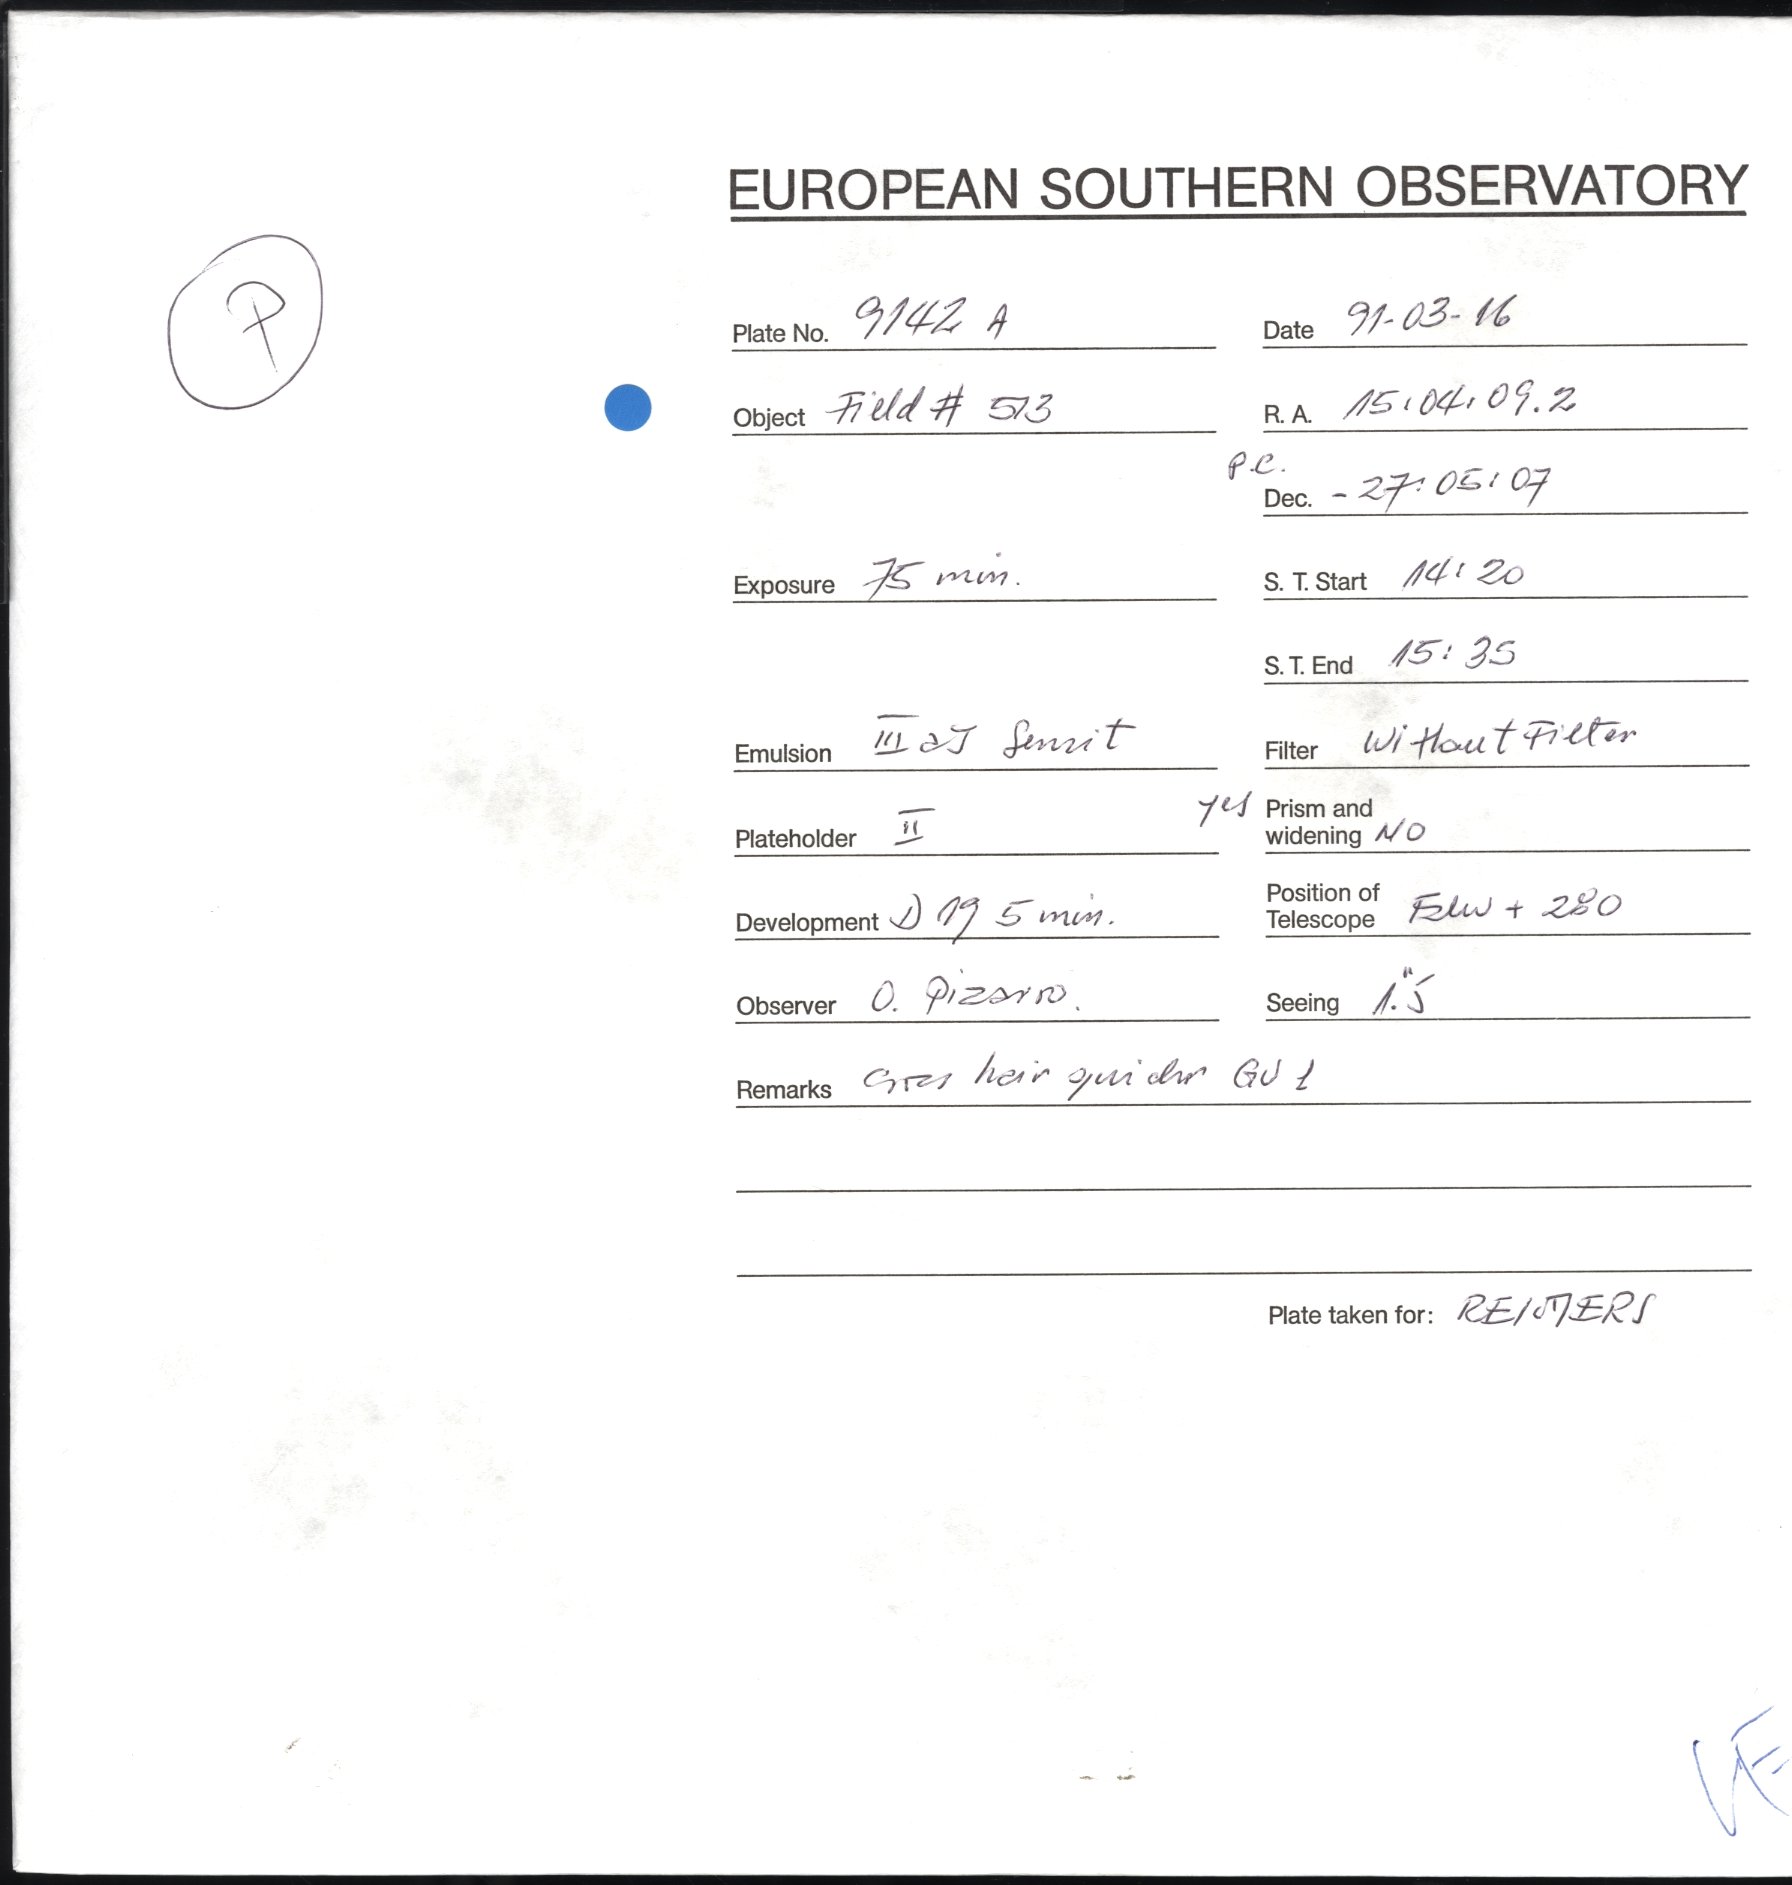 EUROPEAN SOUTHERN OBSERVATORY
P
Plate No. 9142 A Date 91-03-16
Object Field # 513 R. A. 15:04:09.2
P.C.
Dec. - 27:05:07
Exposure 75 min. S. T. Start 14:20
S. T. End 15:35
Emulsion III aJ Sensit Filter Without Filter
Plateholder II yes Prism and
widening NO
Development D 19 5 min. Position of
Telescope + 280
Observer O. Pizarro. Seeing 1."5
Remarks hair GU 1
Plate taken for: REIMERS